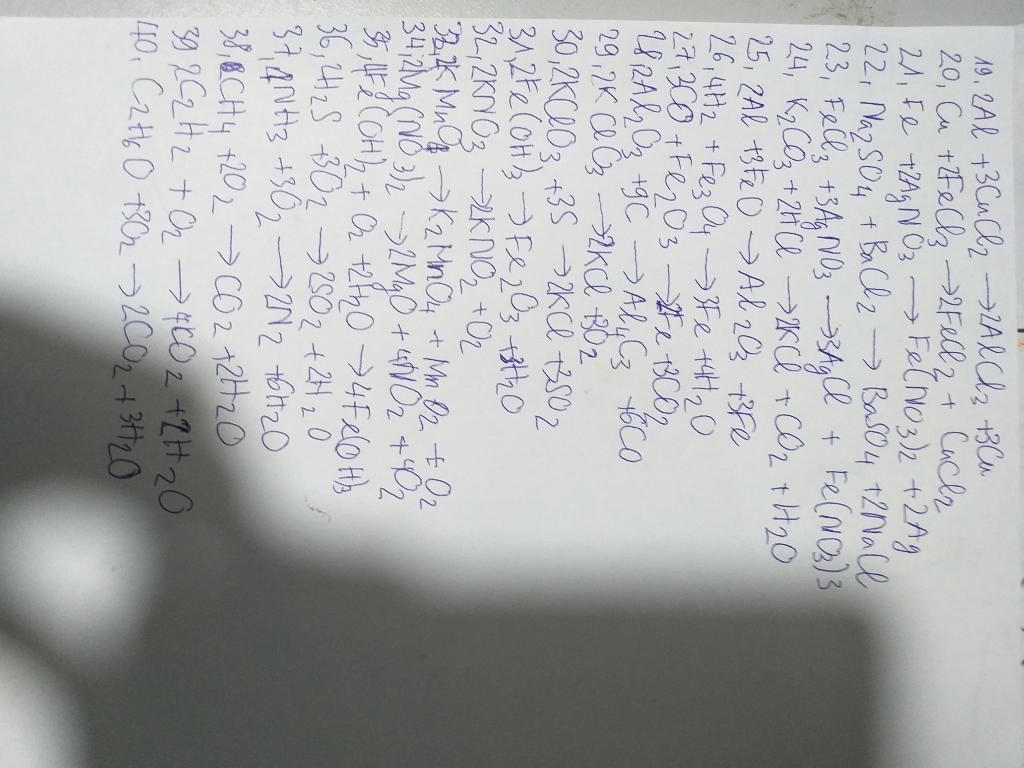 19, 2Al + 3CuCl2 → 2AlCl3 + 3Cu
20, Cu + 2FeCl3 → 2FeCl2 + CuCl2
21, Fe + 2AgNO3 → Fe(NO3)2 + 2Ag
22, Na2SO4 + BaCl2 → BaSO4 + 2NaCl
23, FeCl3 + 3AgNO3 → 3AgCl + Fe(NO3)3
24, K2CO3 + 2HCl → 2KCl + CO2 + H2O
25, 2Al + 3FeO → Al2O3 + 3Fe
26, 4H2 + Fe3O4 → 3Fe + 4H2O
27, 3CO + Fe2O3 → 2Fe + 3CO2
28, 2Al2O3 + 9C → Al4C3 + 6CO
29, 2KClO3 → 2KCl + 3O2
30, 2KClO3 + 3S → 2KCl + 3SO2
31, 2Fe(OH)3 → Fe2O3 + 3H2O
32, 2KNO3 → 2KNO2 + O2
33, 2KMnO4 → K2MnO4 + MnO2 + O2
34, 2Mg(NO3)2 → 2MgO + 4NO2 + O2
35, 4Fe(OH)2 + O2 + 2H2O → 4Fe(OH)3
36, 2H2S + 3O2 → 2SO2 + 2H2O
37, 4NH3 + 3O2 → 2N2 + 6H2O
38, CH4 + 2O2 → CO2 + 2H2O
39, 2C2H2 + O2 → 4CO2 + 2H2O
40, C2H6O + 3O2 → 2CO2 + 3H2O